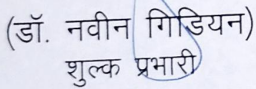 (डॉ. नवीन गिडियन)
शुल्क प्रभारी